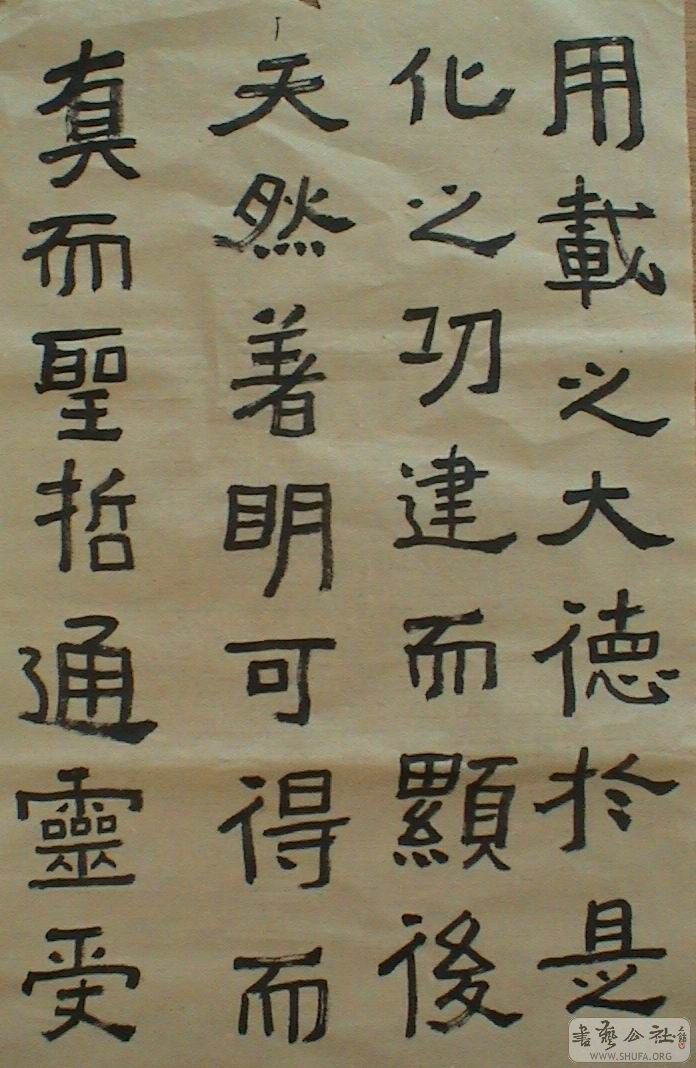 用載之大德於是
化之功建而顯後
天然著明可得而
真而聖哲通靈受
書藝公社
WWW.SHUFA.ORG